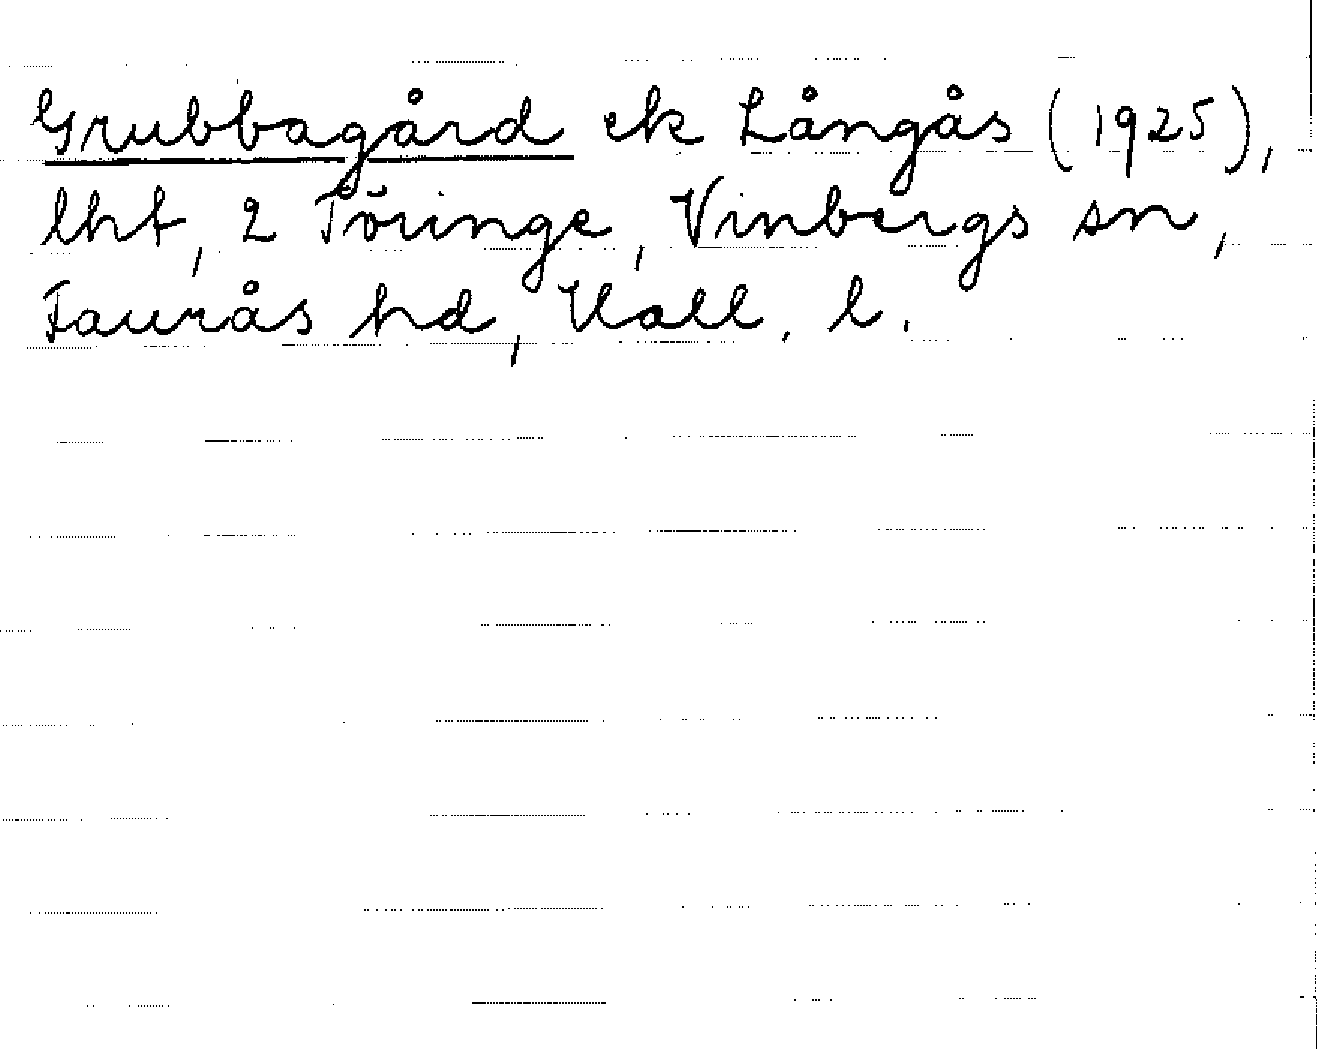 Grubbagård ek Långås (1925),
lht, 2 Töringe, Vinbergs sn,
Faurås hd, Hall. l.